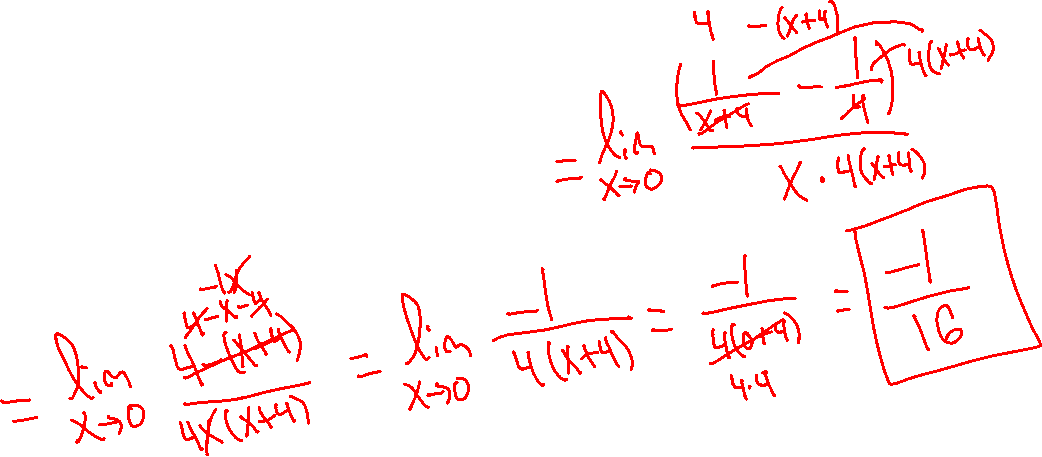 4 -(x+4)
= lim x→0 (1/(x+4) - 1/4) × 4(x+4) / x · 4(x+4)
-1x
4-x-4
= lim x→0 4-(x+4) / 4x(x+4) = lim x→0 -1 / 4(x+4) = -1 / 4(0+4) = -1/16
4·4